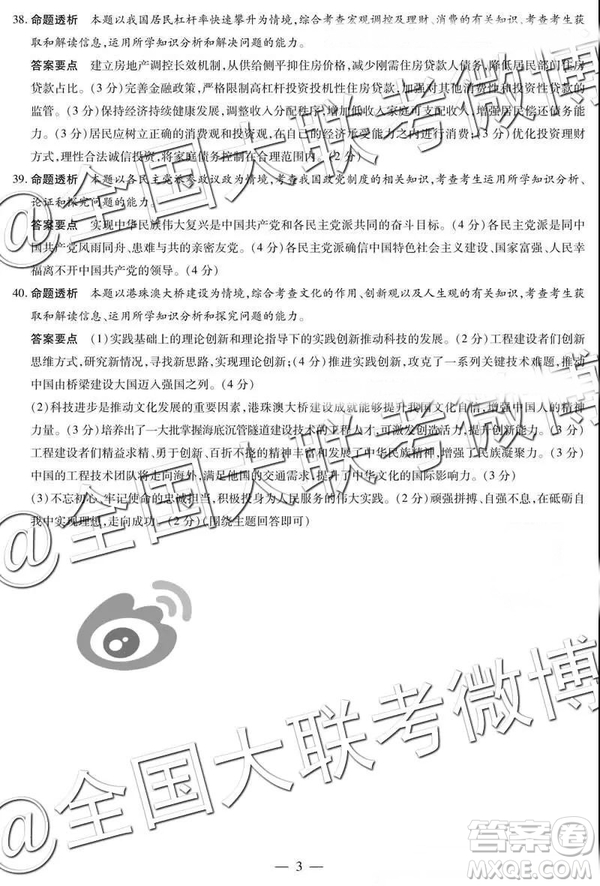 38. 命题透析 本题以我国居民杠杆率快速攀升为情境,综合考查宏观调控及理财、消费的有关知识,考查考生获
取和解读信息,运用所学知识分析和解决问题的能力。
答案要点 建立房地产调控长效机制,从供给侧平抑住房价格,降低居民部门住房贷款人债务,降低住房
贷款占比。(3分)完善金融政策,严格限制高杠杆投资投机性住房贷款,加强对其他消费性和投资性贷款的
监管。(3分)保持经济持续健康发展,调整收入分配秩序,增加低收入家庭可支配收入,增强居民偿还债务能
力。(3分)居民应树立正确的消费观和投资观,在自己的经济承受能力之内进行消费;(3分)优化投资理财
方式,理性合法诚信投资,将家庭债务控制在合理范围内。(2分)
39. 命题透析 本题以各民主党派参政议政为情境,考查我国政党制度的相关知识,考查考生运用所学知识分析、
论证和探究问题的能力。
答案要点 实现中华民族伟大复兴是中国共产党和各民主党派共同的奋斗目标。(4分)各民主党派同中
国共产党风雨同舟、患难与共的亲密友党。(4分)各民主党派确信中国特色社会主义建设、国家富强、人民幸
福离不开中国共产党的领导。(4分)
40. 命题透析 本题以港珠澳大桥建设为情境,综合考查文化的作用、创新观以及人生观的有关知识,考查考生获
取和解读信息、运用所学知识分析和探究问题的能力。
答案要点 (1)实践基础上的理论创新和理论指导下的实践创新推动科技的发展。(2分)工程建设者们创新
思维方式,研究新情况,寻找新思路,(4分)推进实践创新,攻克了一系列关键技术难题,推动
中国由桥梁建设大国迈入强国之列。(4分)
(2)科技进步是推动文化发展的重要因素,港珠澳大桥建设成就能够提升我国文化自信,增强中国人的精神
力量。(3分)培养出了一大批掌握海底沉管隧道建设技术的工程人才,可激发创造活力,提升创新能力。(3分)
工程建设者们精益求精、勇于创新、百折不挠的精神丰富和发展了中华民族精神,增强了民族凝聚力。(3分)
中国的工程技术团队将走向海外,满足他国的交通需求,提升了中华文化的国际影响力。(3分)
(3)不忘初心,牢记使命的忠诚担当,积极投身为人民服务的伟大实践。(2分)顽强拼搏、自强不息,在砥砺自
我中实现理想,走向成功。(2分)(围绕主题回答即可)
@全国大联考微博
@全国大联考微博
@全国大联考微博
答案圈
MXQE.COM
— 3 —